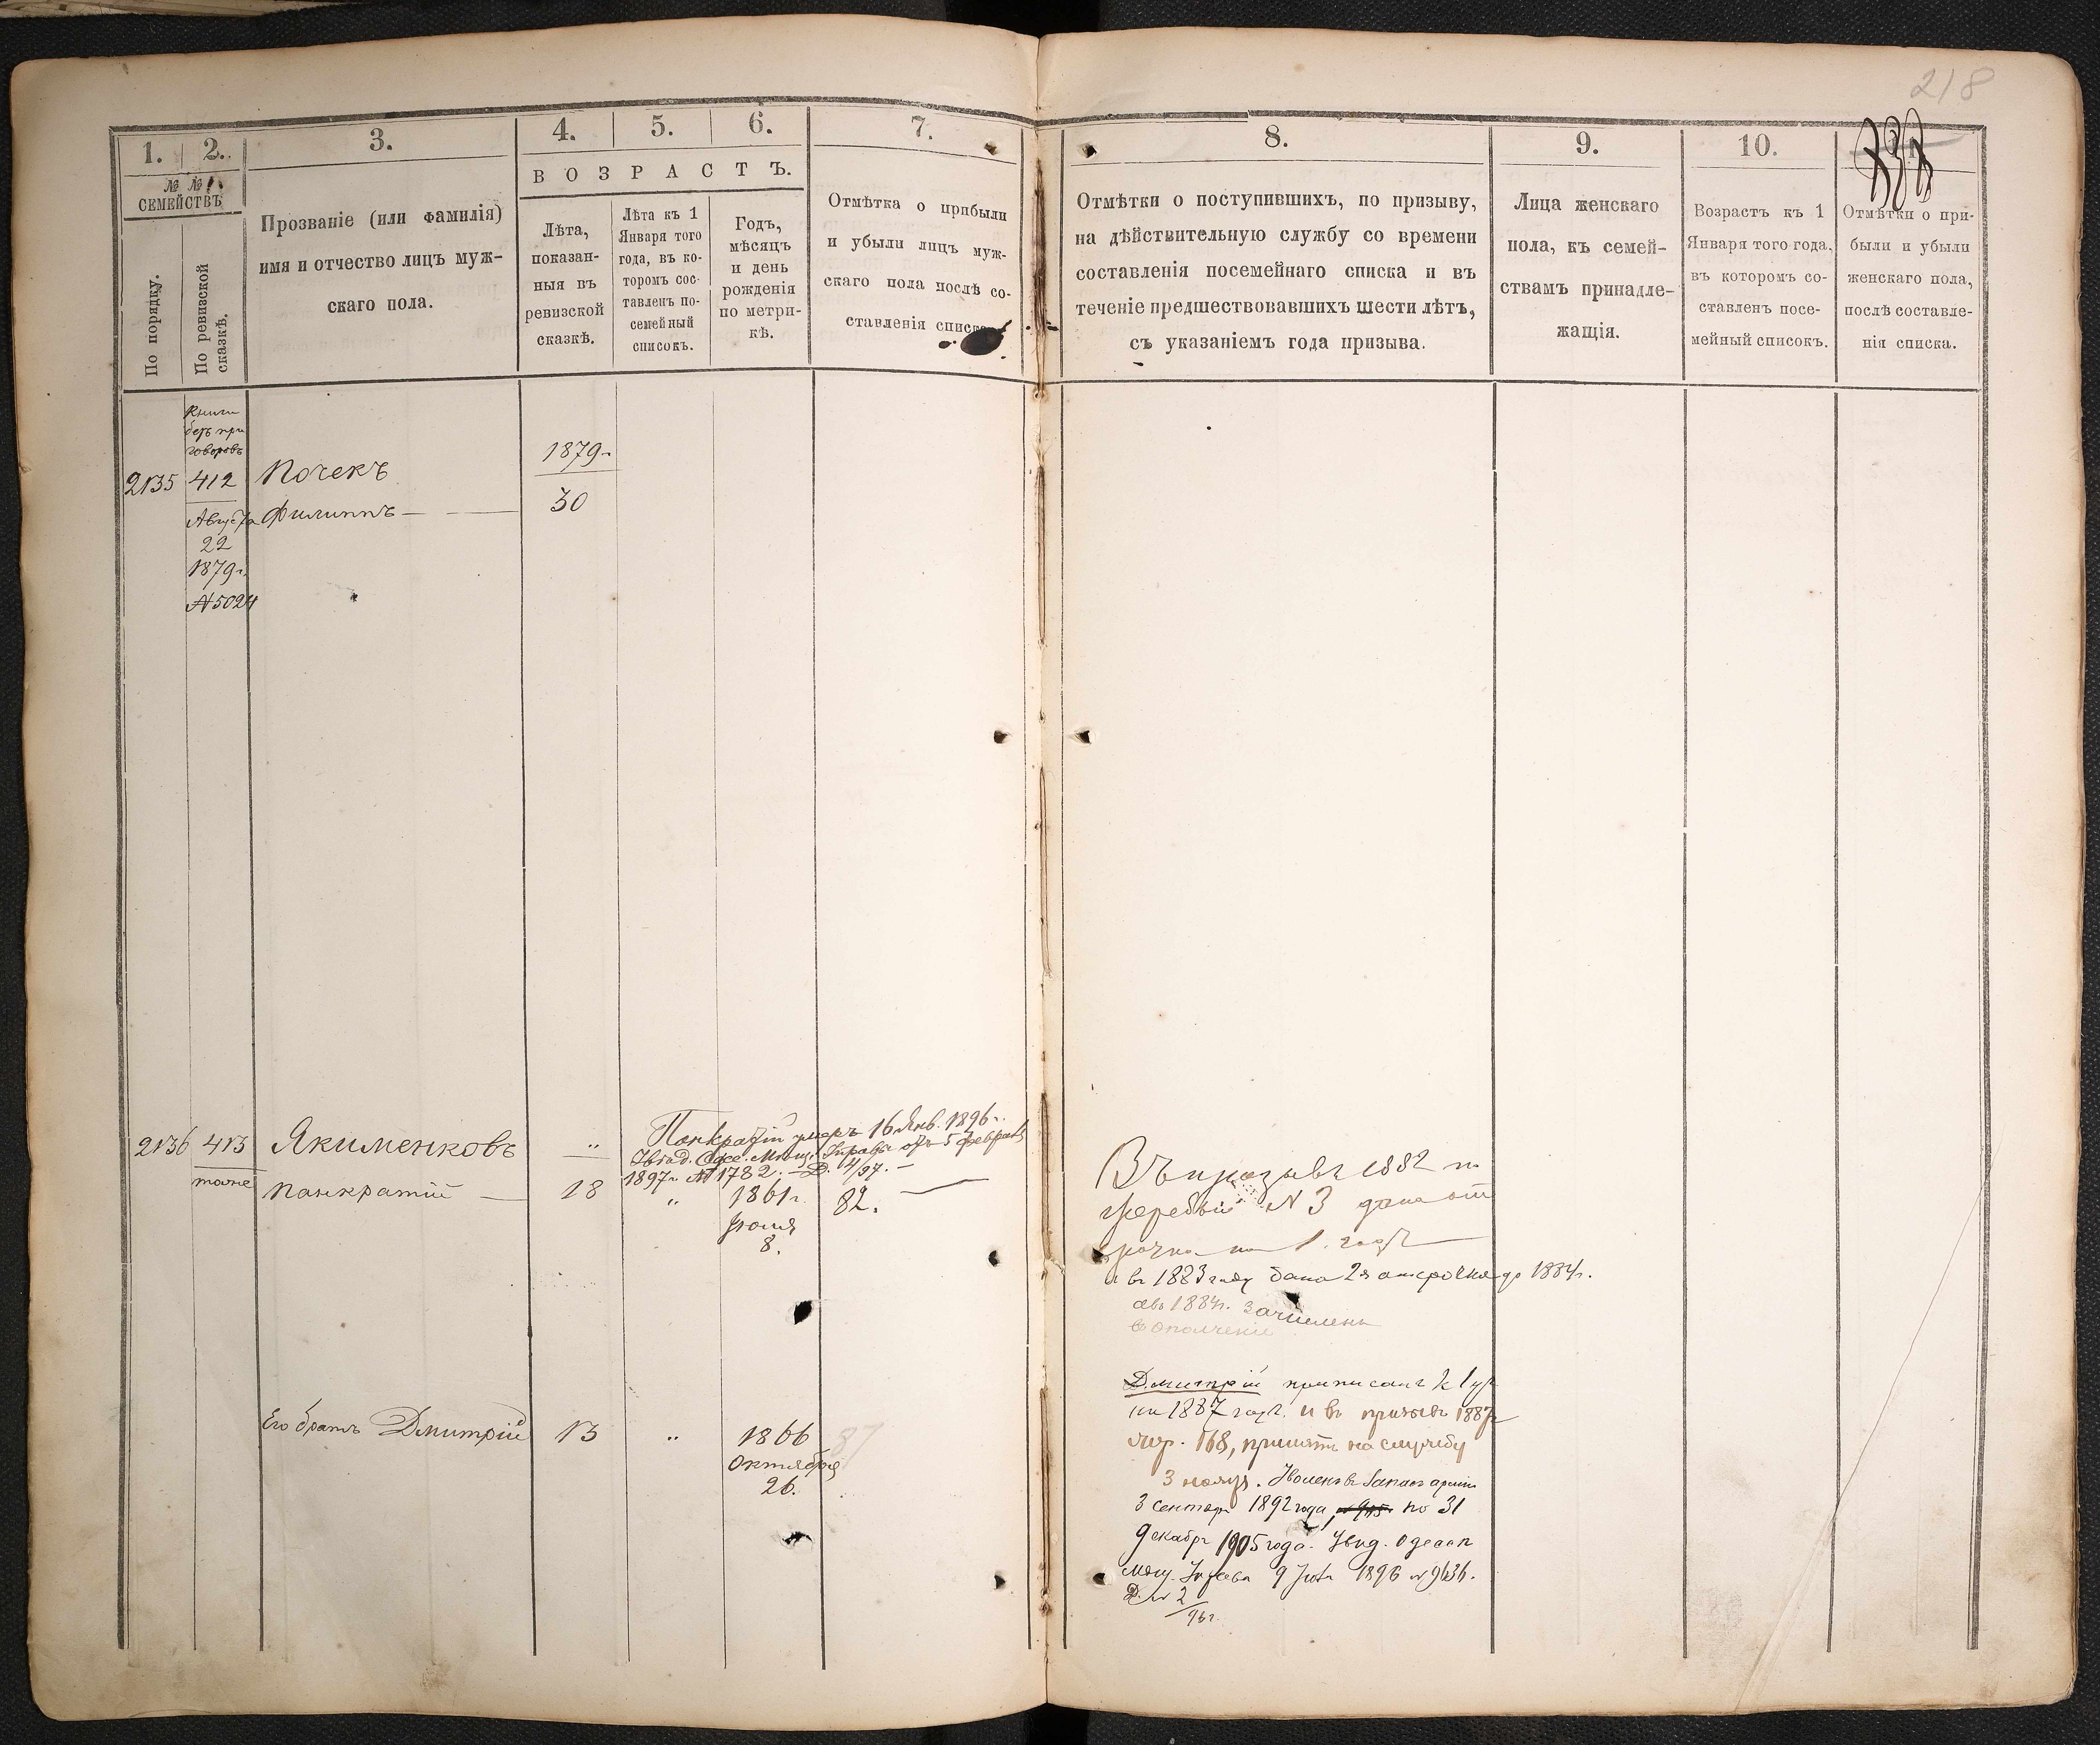 218
1.
2.
3.
4.
5.
6.
7.
8.
9.
10.
№ №
СЕМЕЙСТВЪ
По порядку.
По ревизской
сказкѣ.
Прозваніе (или фамилія)
имя и отчество лицъ муж-
скаго пола.
ВОЗРАСТЪ.
Лѣта,
показан-
ныя въ
ревизской
сказкѣ.
Лѣта къ 1
Января того
года, въ ко-
торомъ сос-
тавленъ по-
семейный
списокъ.
Годъ,
мѣсяцъ
и день
рожденія
по метри-
кѣ.
Отмѣтка о прибыли
и убыли лицъ муж-
скаго пола послѣ со-
ставленія списка
Отмѣтки о поступившихъ, по призыву,
на дѣйствительную службу со времени
составленія посемейнаго списка и въ
теченіе предшествовавшихъ шести лѣтъ,
съ указаніемъ года призыва.
Лица женскаго
пола, къ семей-
ствамъ принадле-
жащія.
Возрастъ къ 1
Января того года,
въ которомъ со-
ставленъ посе-
мейный списокъ.
Отмѣтки о при-
были и убыли
женскаго пола,
послѣ составле-
нія списка.
Книги
безъ при
говоровъ
2135 412 Почекъ 1879г
Августа Филиппъ 30
22
1879г.
№ 5024
2136 413 Якименковъ „
Панкратій умеръ 16 Янв. 1896г.
Увѣд. Одес. Мѣщ. Управы отъ 5 февраля
1897г № 1782. Д. 4/97.
тоже Панкратій 18 „ 1861г 82.
Іюля
8.
Въ призывъ 1882 г.
жеребій № 3 дана от
срочка на 1 годъ
и въ 1883 году дана 2я отсрочка до 1884г.
а въ 1884г. зачисленъ
в ополченіе
Его братъ Дмитрій 13 „ 1866 87
Октября
26.
Дмитрій приписанъ к 1 уч
на 1887 годъ. и въ призывъ 1887г
жер. 168, принятъ на службу
3 ноябр. Уволенъ в запасъ арміи
3 сентябр 1892 года, по 31
декабр 1905 года. Увѣд. Одесск
мѣщ. Управы 9 1896 № 9636.
Д. № 2
/96г.